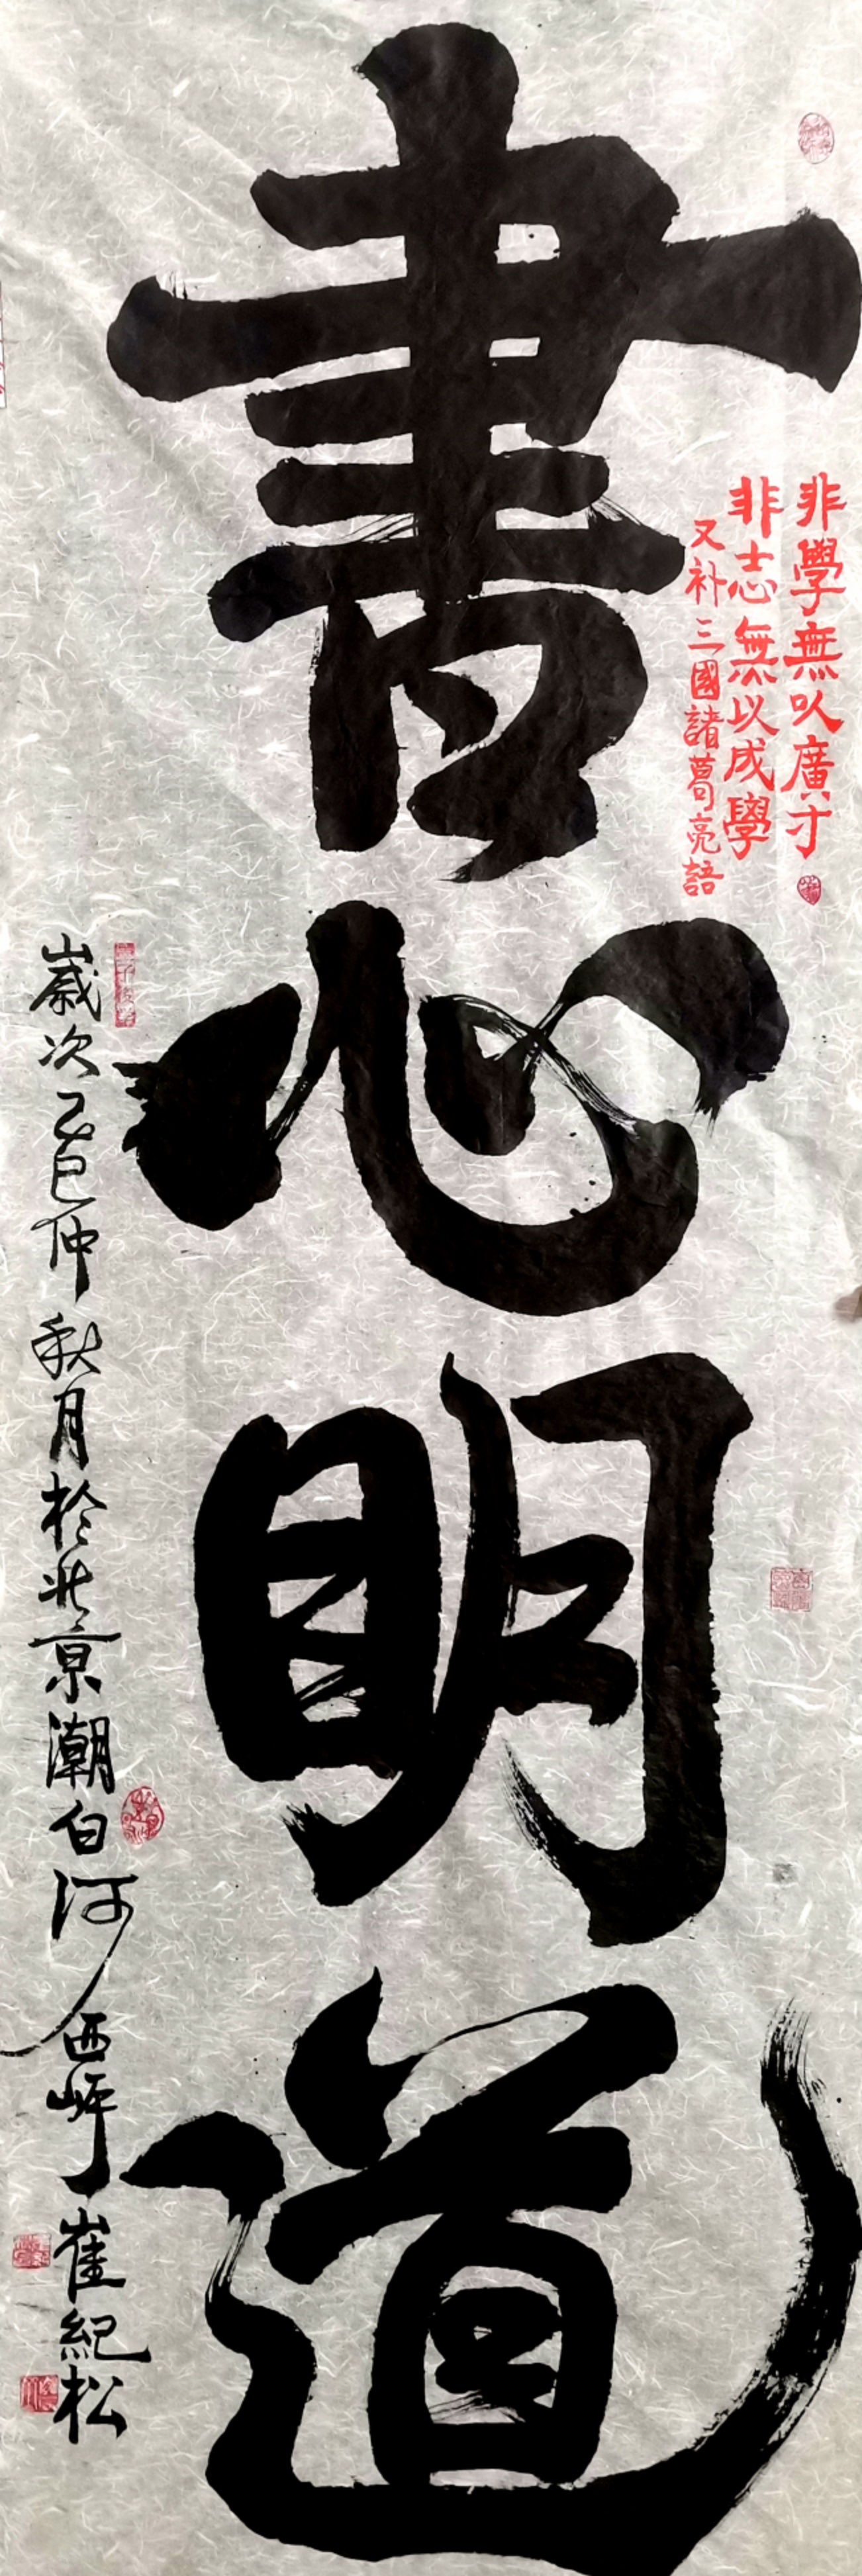 書心明道
非學無以廣才
非志無以成學
又补三國諸葛亮語
歲次乙巳仲秋月於北京潮白河西岸崔紀松